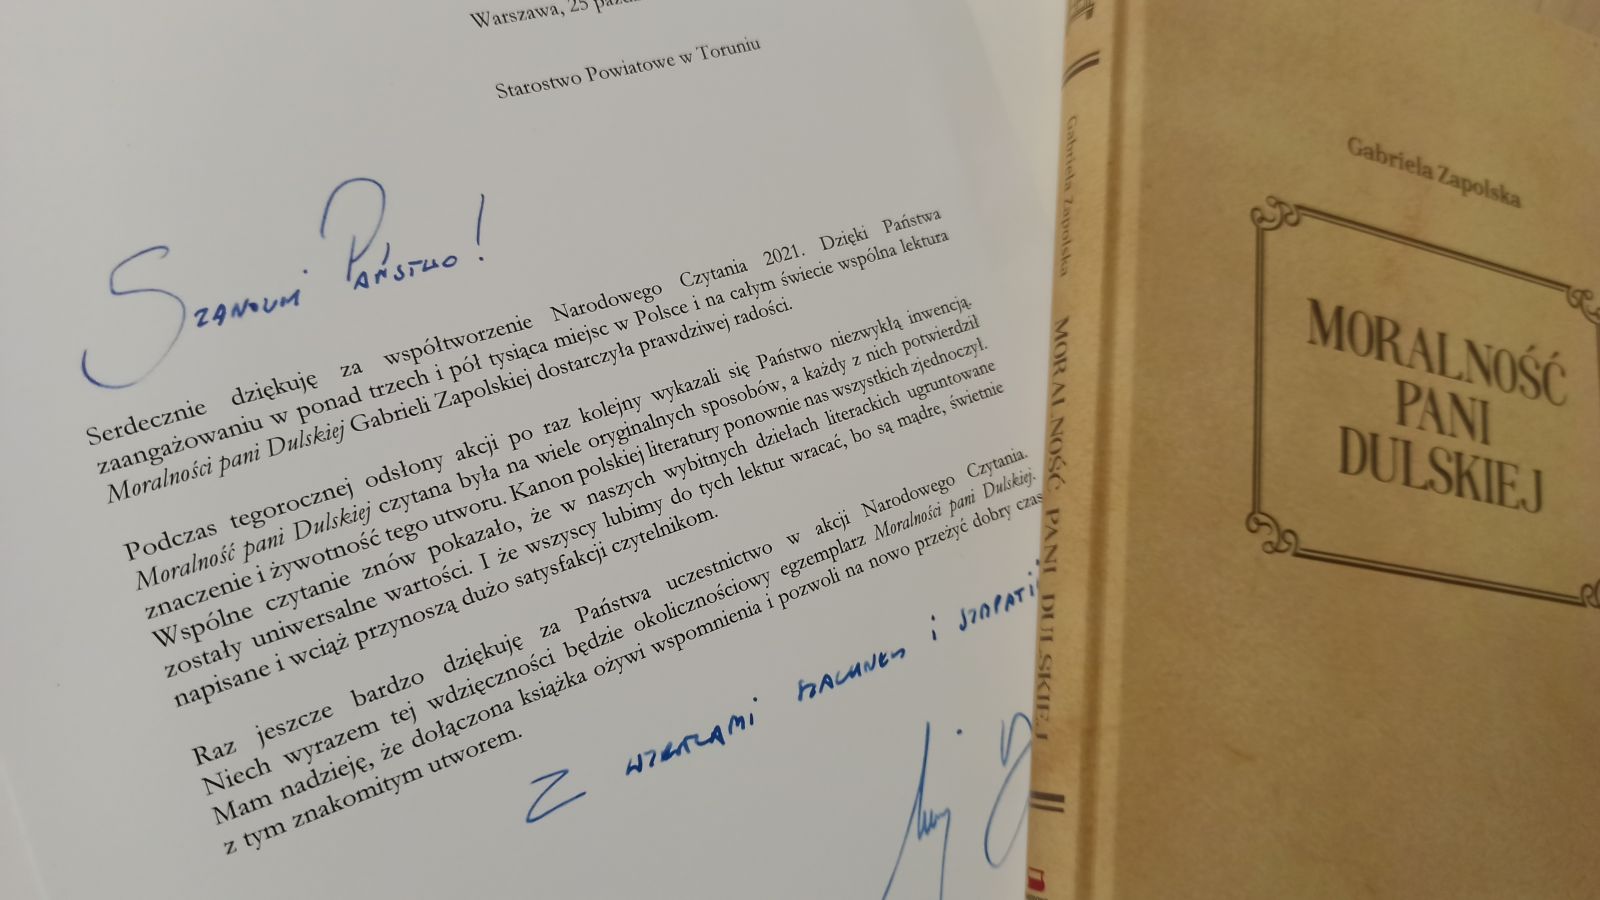 Warszawa, 25
Starostwo Powiatowe w Toruniu
Szanowni Państwo!
Serdecznie dziękuję za współtworzenie Narodowego Czytania 2021. Dzięki Państwa
zaangażowaniu w ponad trzech i pół tysiąca miejsc w Polsce i na całym świecie wspólna lektura
Moralności pani Dulskiej Gabrieli Zapolskiej dostarczyła prawdziwej radości.
Podczas tegorocznej odsłony akcji po raz kolejny wykazali się Państwo niezwykłą inwencją.
Moralność pani Dulskiej czytana była na wiele oryginalnych sposobów, a każdy z nich potwierdził
znaczenie i żywotność tego utworu. Kanon polskiej literatury ponownie nas wszystkich zjednoczył.
Wspólne czytanie znów pokazało, że w naszych wybitnych dziełach literackich ugruntowane
zostały uniwersalne wartości. I że wszyscy lubimy do tych lektur wracać, bo są mądre, świetnie
napisane i wciąż przynoszą dużo satysfakcji czytelnikom.
Raz jeszcze bardzo dziękuję za Państwa uczestnictwo w akcji Narodowego Czytania.
Niech wyrazem tej wdzięczności będzie okolicznościowy egzemplarz Moralności pani Dulskiej.
Mam nadzieję, że dołączona książka ożywi wspomnienia i pozwoli na nowo przeżyć dobry czas
z tym znakomitym utworem.
Z wyrazami szacunku i
Gabriela Zapolska MORALNOŚĆ PANI DULSKIEJ
Gabriela Zapolska
MORALNOŚĆ
PANI
DULSKIEJ